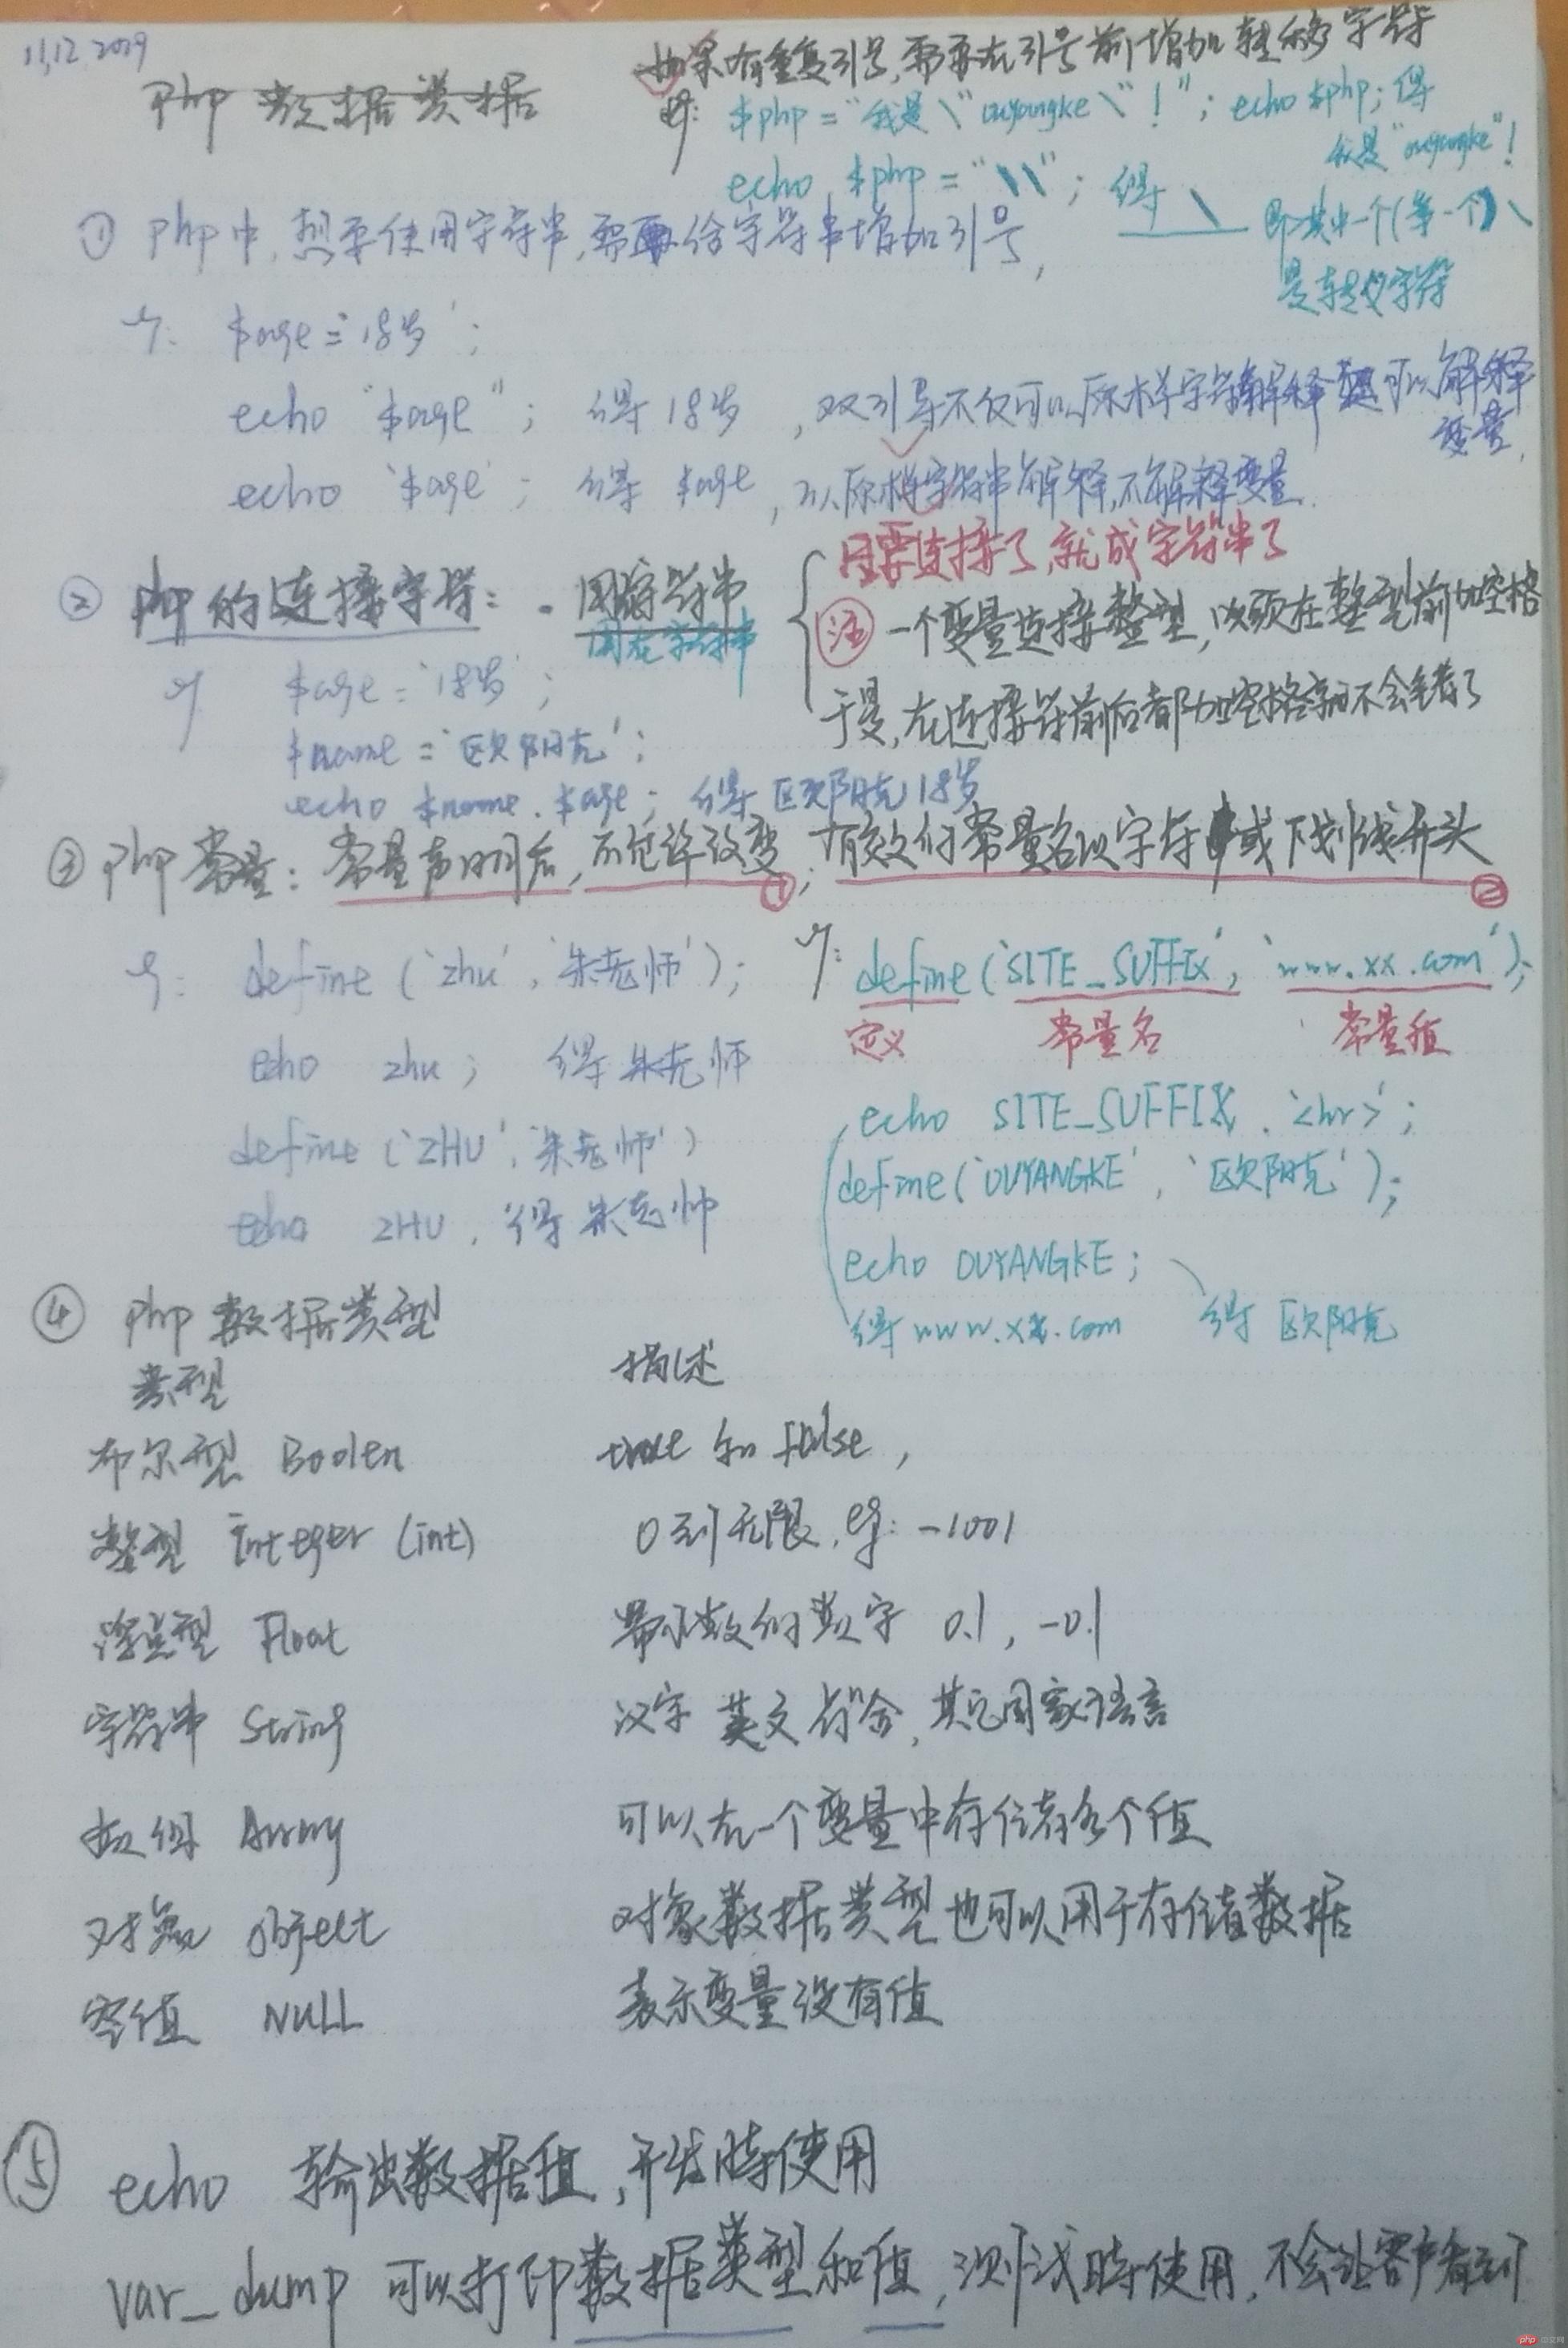 11,12 2019
php 数据类据
如果有重复引号,需要在引号前增加转移字符
eg: $php="我是\"ouyangke\"!"; echo $php; 得
我是"ouyangke"!
echo $php="\\"; 得 \ 即其中一个(第一个)\
是转义字符
① php中,想要使用字符串,需要给字符串增加引号,
eg: $age='18岁';
echo "$age"; 得18岁 ,双引号不仅可以原样字符解释 还可以解释
变量,
echo '$age'; 得 $age ,以原样字符串解释,不解释变量.
② php的连接字符: . 用字符串
用在字符串
只要连接了,就成字符串了
注 一个变量连接整型,必须在整型前加空格
于是,在连接符前后都加空格就不会错了
eg $age='18岁';
$name='欧阳克';
echo $name.$age; 得 欧阳克18岁
③ php常量: 常量声明后,不允许改变①; 有效的常量名以字符或下划线开头②
eg: define('zhu','朱老师');
echo zhu; 得 朱老师
define('ZHU','朱老师')
echo ZHU, 得 朱老师
eg: define('SITE_SUFFIX','www.xx.com');
定义 常量名 常量值
echo SITE_SUFFIX.'<hr>';
define('OUYANGKE','欧阳克');
echo OUYANGKE;
得 www.xx.com 得 欧阳克
④ php数据类型
类型 描述
布尔型 Boolen true 和 false,
整型 Integer (int) 0到无限, eg: -1001
浮点型 Float 带小数的数字 0.1, -0.1
字符串 String 汉字 英文 符合,其它国家语言
数组 Array 可以在一个变量中存储多个值
对象 Object 对象数据类型也可以用于存储数据
空值 NULL 表示变量没有值
⑤ echo 输出数据值,开发时使用
var_dump 可以打印数据类型和值,测试时使用,不会让客户看到